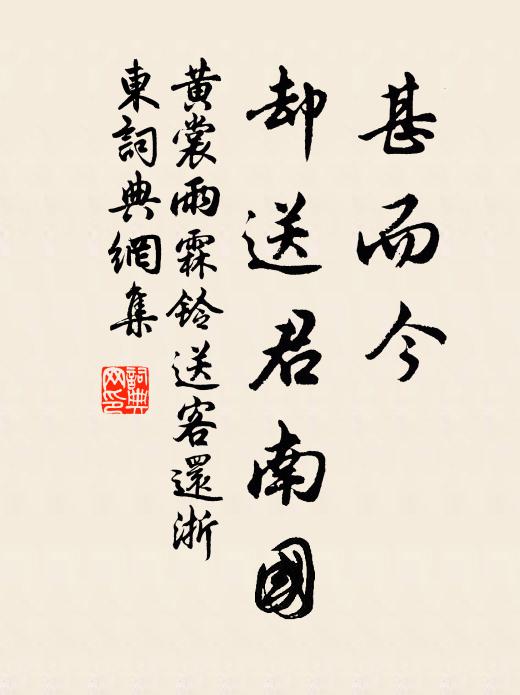 甚而今
却送君南國
黄裳雨霖鈴送客還浙
東詞典網集
詞典
网印